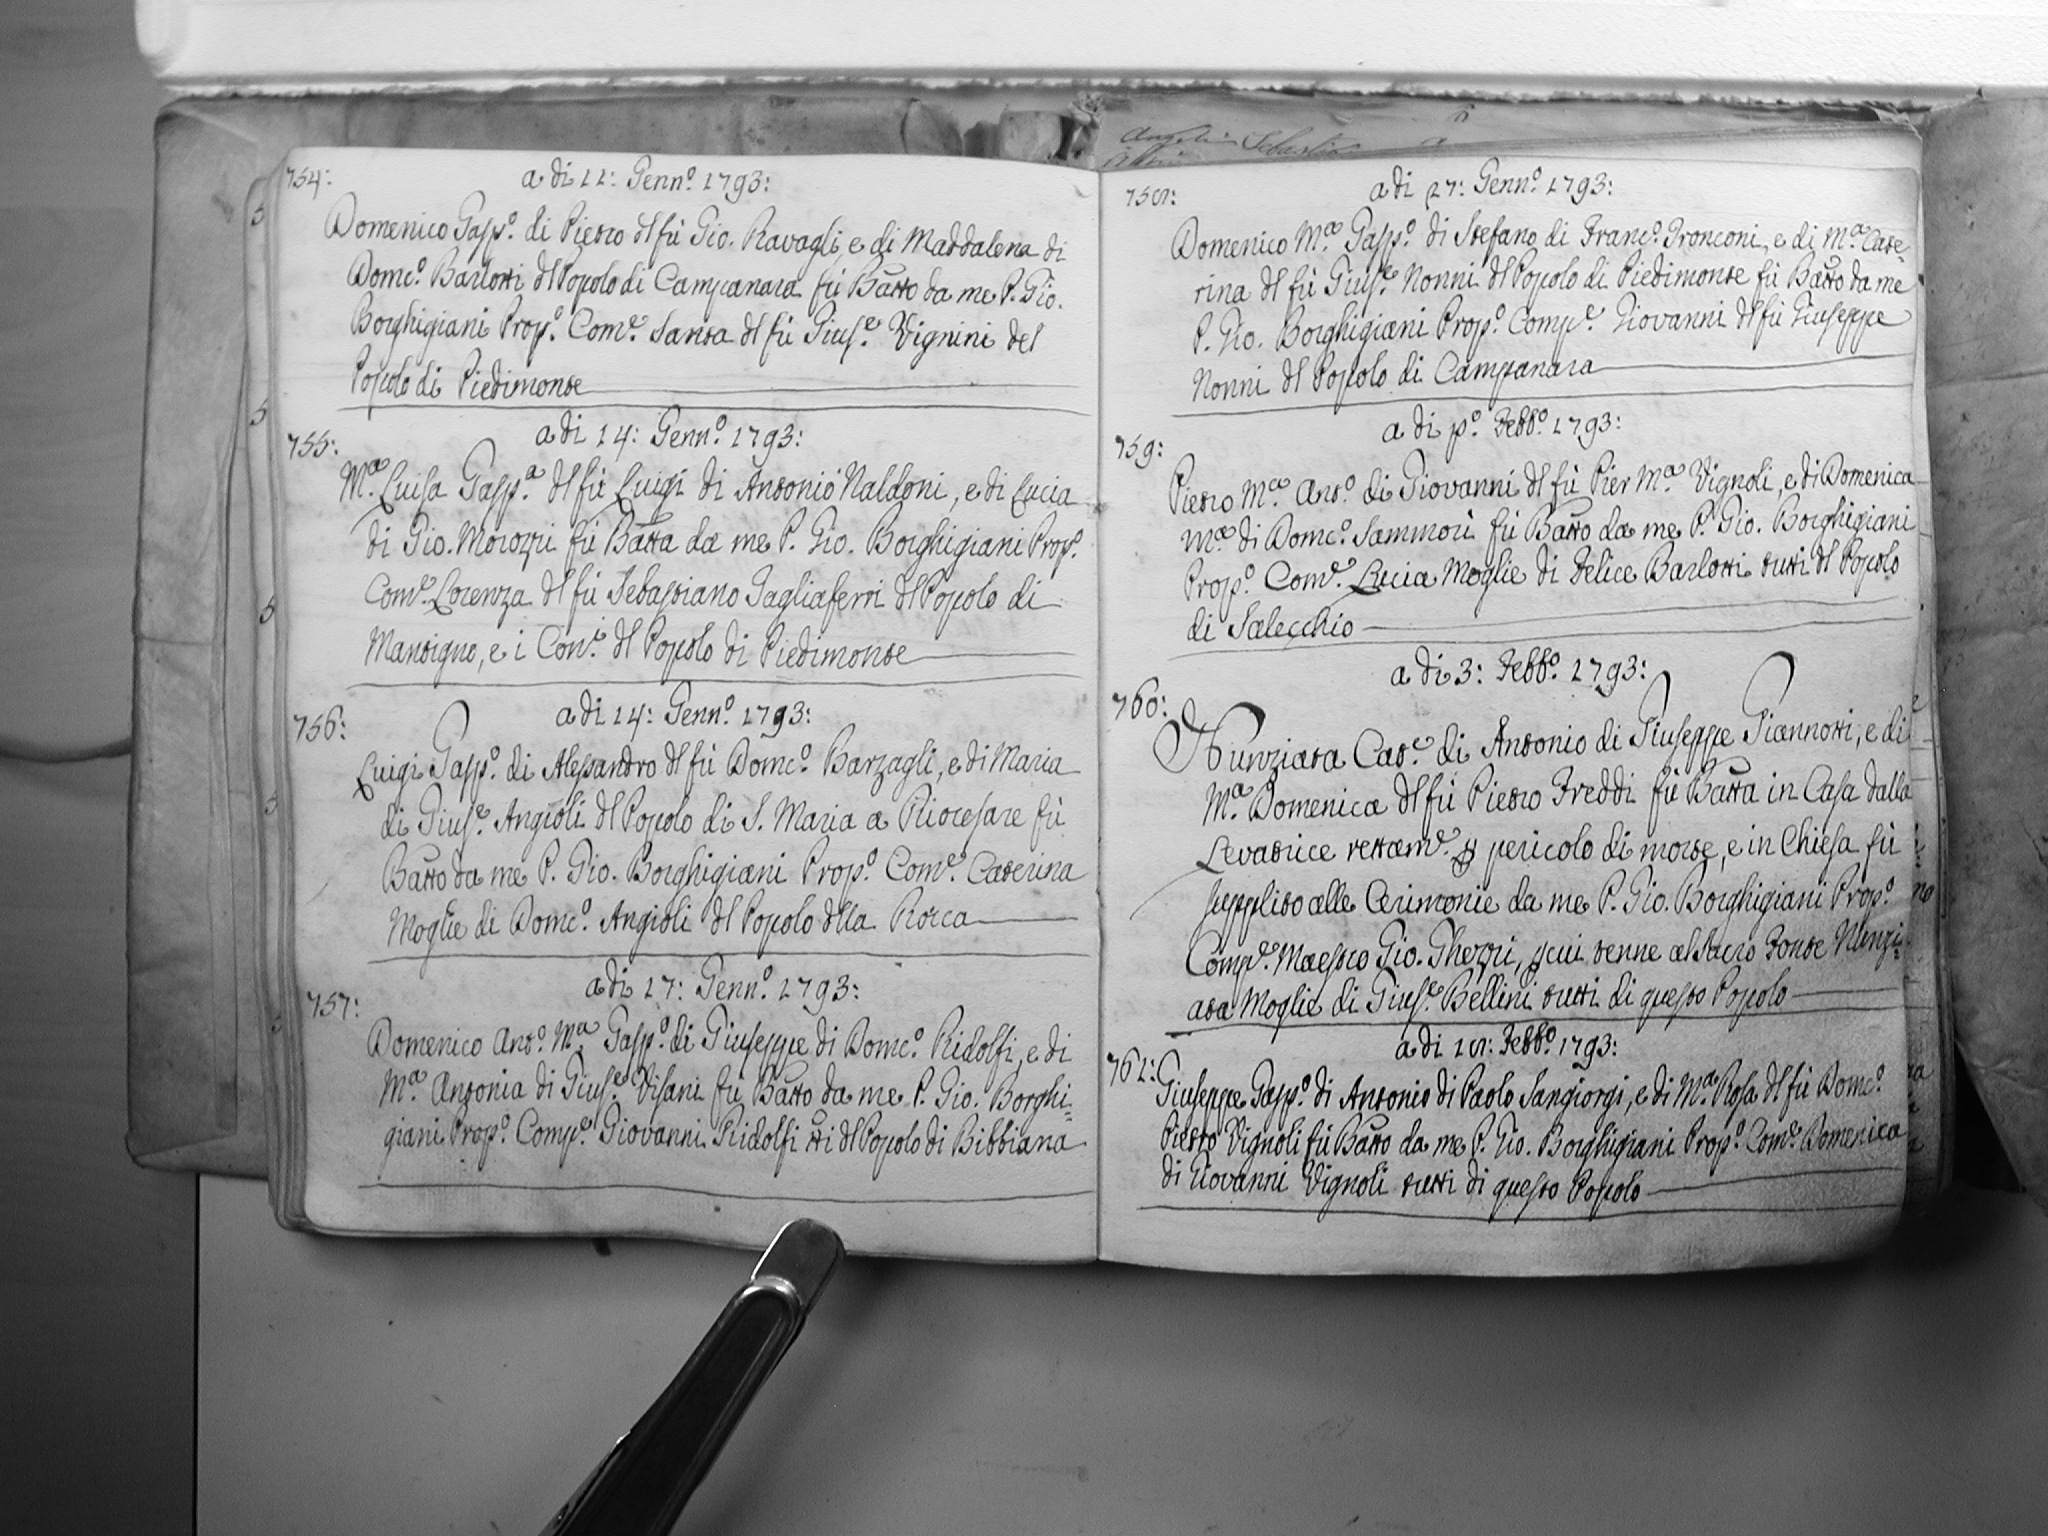 754:
a di 11: Genn.º 1793:
Domenico Gasp.º di Pietro dl fù Gio. Ravagli, e di Maddalena di
Domc.º Barlotti dl Popolo di Campanara fù Batto da me P. Gio.
Borghigiani Prop.º Com.e Santa dl fù Gius.e Vignini del
Popolo di Piedimonte
755:
a di 14: Genn.º 1793:
M.a Luisa Gasp.a dl fù Luigi di Antonio Naldoni, e di Lucia
di Gio. Morozzi fù Batta da me P. Gio. Borghigiani Prop.º
Com.e Lorenza dl fù Sebastiano Tagliaferri dl Popolo di
Mantigno, e i Con.i dl Popolo di Piedimonte
756:
a di 14: Genn.º 1793:
Luigi Gasp.º di Alessandro dl fù Domc.º Barzagli, e di Maria
di Gius.e Angioli dl Popolo di S. Maria a Riocesare fù
Batto da me P. Gio. Borghigiani Prop.º Com.e Caterina
Moglie di Domc.º Angioli dl Popolo dlla Rocca
757:
a di 17: Genn.º 1793:
Domenico Ant.º M.a Gasp.º di Giuseppe di Domc.º Ridolfi, e di
M.a Antonia di Gius.e Visani fù Batto da me P. Gio. Borghi=
giani Prop.º Comp.e Giovanni Ridolfi tti dl Popolo di Bibbiana
Angeli Sebastia
758:
a di 27: Genn.º 1793:
Domenico M.a Gasp.º di Stefano di Franc.º Tronconi, e di M.a Cate=
rina dl fù Gius.e Nonni dl Popolo di Piedimonte fù Batto da me
P. Gio. Borghigiani Prop.º Comp.e Giovanni dl fù Giuseppe
Nonni dl Popolo di Campanara
759:
a di p.º Febb.º 1793:
Pietro M.a Ant.º di Giovanni dl fù Pier M.a Vignoli, e di Domenica
M.a di Domc.º Sammori fù Batto da me P. Gio. Borghigiani
Prop.º Com.e Lucia Moglie di Felice Barlotti tutti dl Popolo
di Salecchio
a di 3: Febb.º 1793:
760:
Nunziata Cat.e di Antonio di Giuseppe Giannotti, e di
M.a Domenica dl fù Pietro Freddi fù Batta in Casa dalla
Levatrice rettam.e p pericolo di morte, e in Chiesa fù
supplito alle Cerimonie da me P. Gio. Borghigiani Prop.º
Comp.e Maestro Gio. Gherzi, p cui tenne al Sacro Fonte Nunzi=
ata Moglie di Gius.e Bellini tutti di questo Popolo
a di 15: Febb.º 1793:
761:
Giuseppe Gasp.º di Antonio di Paolo Sangiorgi, e di M.a Rosa dl fù Domc.º
Pietro Vignoli fù Batto da me P. Gio. Borghigiani Prop.º Com.e Domenica
di Giovanni Vignoli tutti di questo Popolo